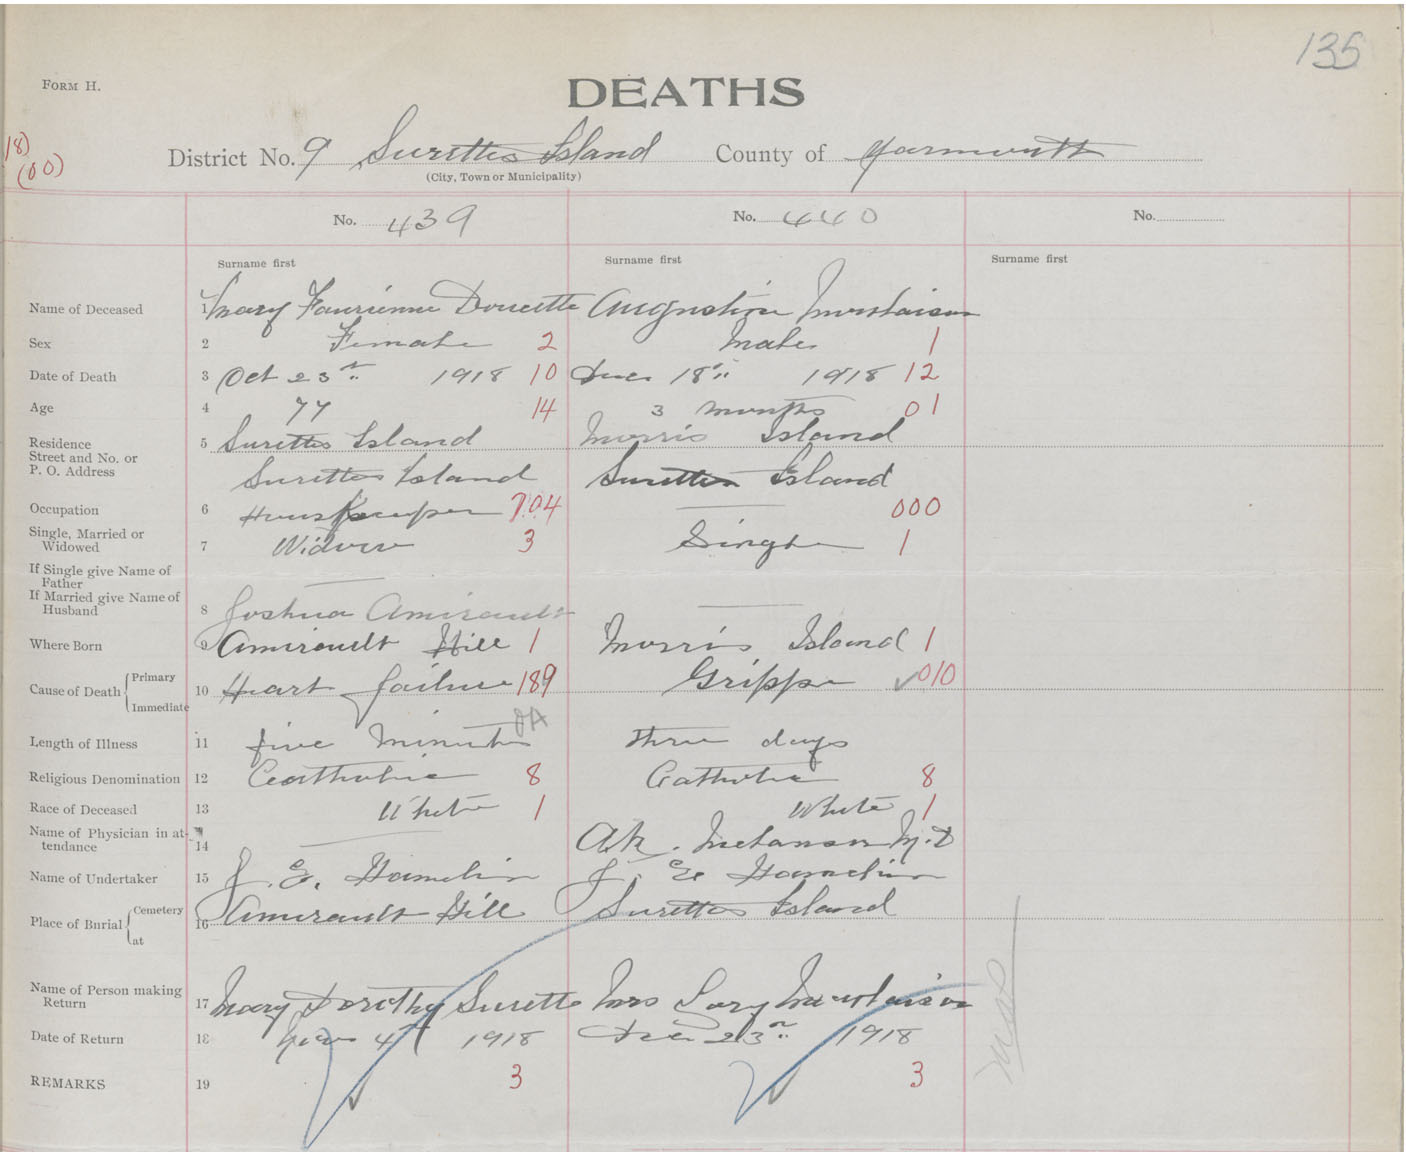 135
FORM H.
DEATHS
18)
(00)
District No. 9 Surettes Island County of Yarmouth
(City, Town or Municipality)
No. 439 No. 440 No.
Surname first Surname first Surname first
Name of Deceased 1 Mary Doucette Augustin
Sex 2 Female 2 Male 1
Date of Death 3 Oct 23rd 1918 10 Dec 18th 1918 12
Age 4 77 14 3 months 01
Residence 5 Surettes Island Morris Island
Street and No. or
P. O. Address Surettes Island Surettes Island
Occupation 6 Housekeeper 704 000
Single, Married or
Widowed 7 Widow 3 Single 1
If Single give Name of
Father
If Married give Name of
Husband 8 Joshua Amirault
Where Born 9 Amirault Hill 1 Morris Island 1
Cause of Death Primary 10 Heart failure 189 Grippe 010
Immediate
Length of Illness 11 five minutes three days
Religious Denomination 12 Catholic 8 Catholic 8
Race of Deceased 13 White 1 White 1
Name of Physician in at-
tendance 14 M.D
Name of Undertaker 15 J. E. Hamelin J. E. Hamelin
Place of Burial Cemetery 16 Amirault Hill Surettes Island
at
Name of Person making
Return 17 Mary Dorothy Surette Mrs
Date of Return 18 Nov 4th 1918 Dec 23rd 1918
REMARKS 19 3 3